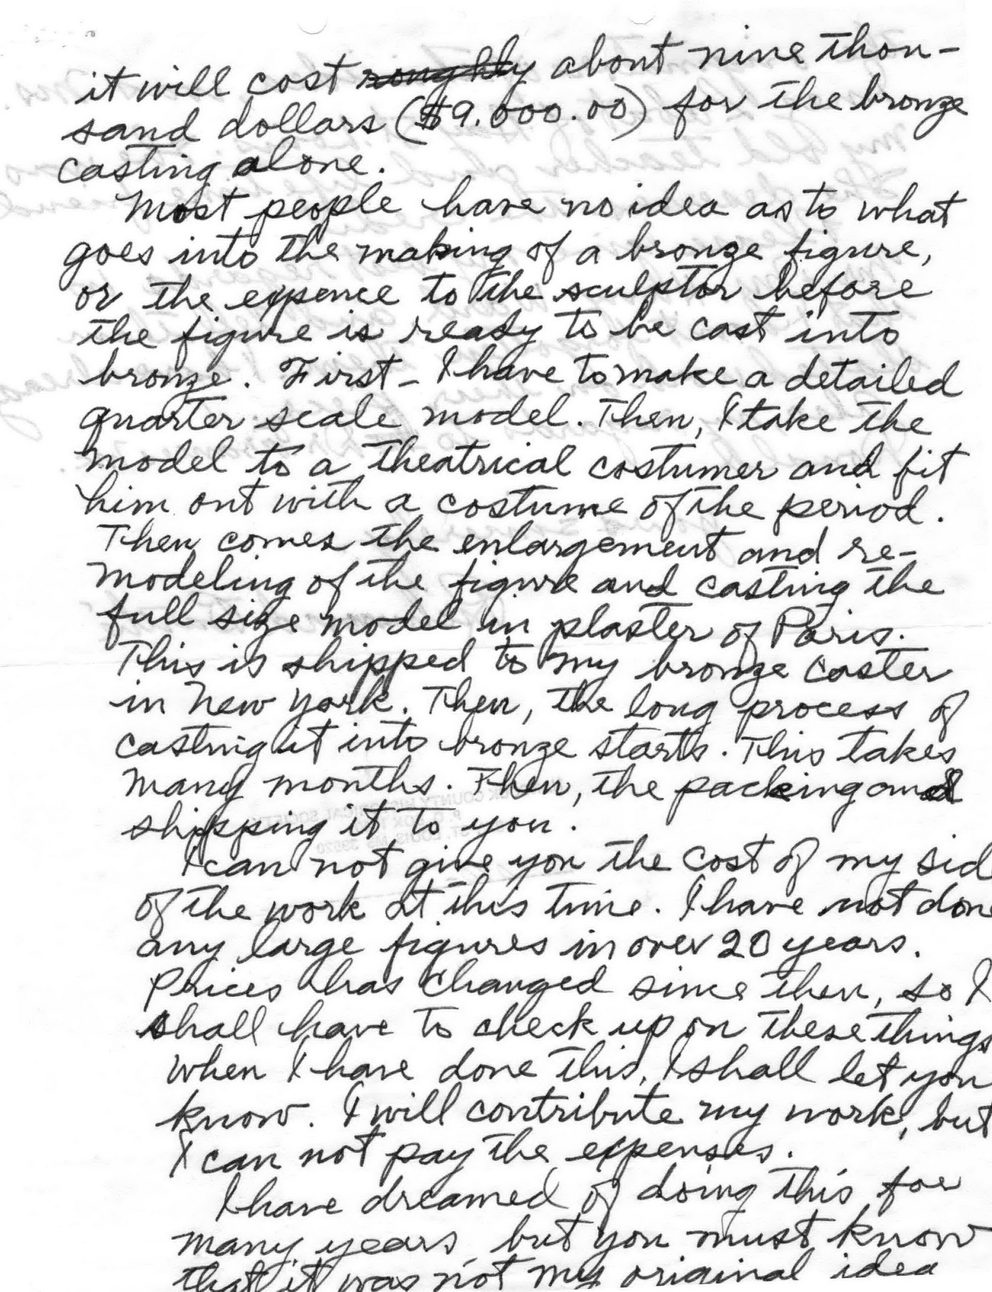 it will cost roughly about nine thou-
sand dollars ($9.000.00) for the bronze
casting alone.
Most people have no idea as to what
goes into the making of a bronze figure,
or the expence to the sculptor before
the figure is ready to be cast into
bronze. First - I have to make a detailed
quarter scale model. Then, I take the
model to a theatrical costumer and fit
him out with a costume of the period.
Then comes the enlargement and re-
modeling of the figure and casting the
full size model in plaster of Paris.
This is shipped to my bronze caster
in New York. Then, the long process of
casting it into bronze starts. This takes
many months. Then, the packing and
shipping it to you.
I can not give you the cost of my sid
of the work at this time. I have not done
any large figures in over 20 years.
Prices has changed since then, so I
shall have to check up on these things
When I have done this, I shall let you
know. I will contribute my work, but
I can not pay the expenses.
I have dreamed of doing this for
many years, but you must know
that it was not my original idea